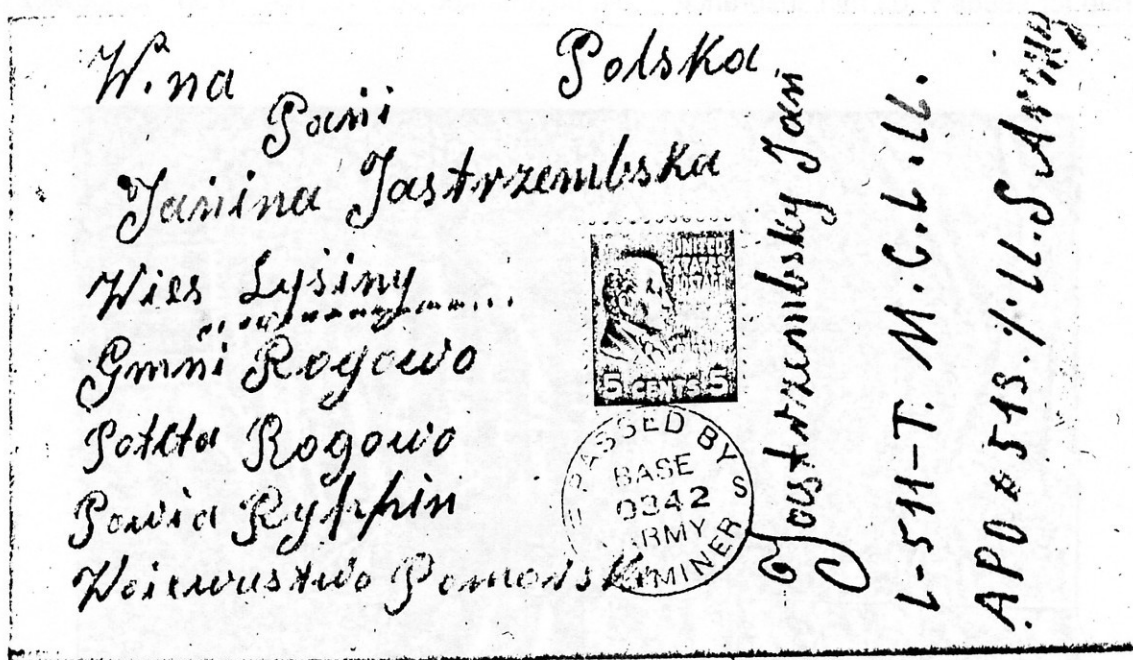 W. na Polska
Pani
Janina Jastrzembska
Wies Lysiny
Gmni Rogowo
Rogowo
Powia Ryppin
Woiewustwo Pomorski
UNITED
STATES
POSTAGE
5 CENTS 5
PASSED BY
BASE
0342
ARMY
EXAMINER
Jastrzembsky Jan
L-511-T. M.C.L.LL.
APO # 513. %. U.S Army